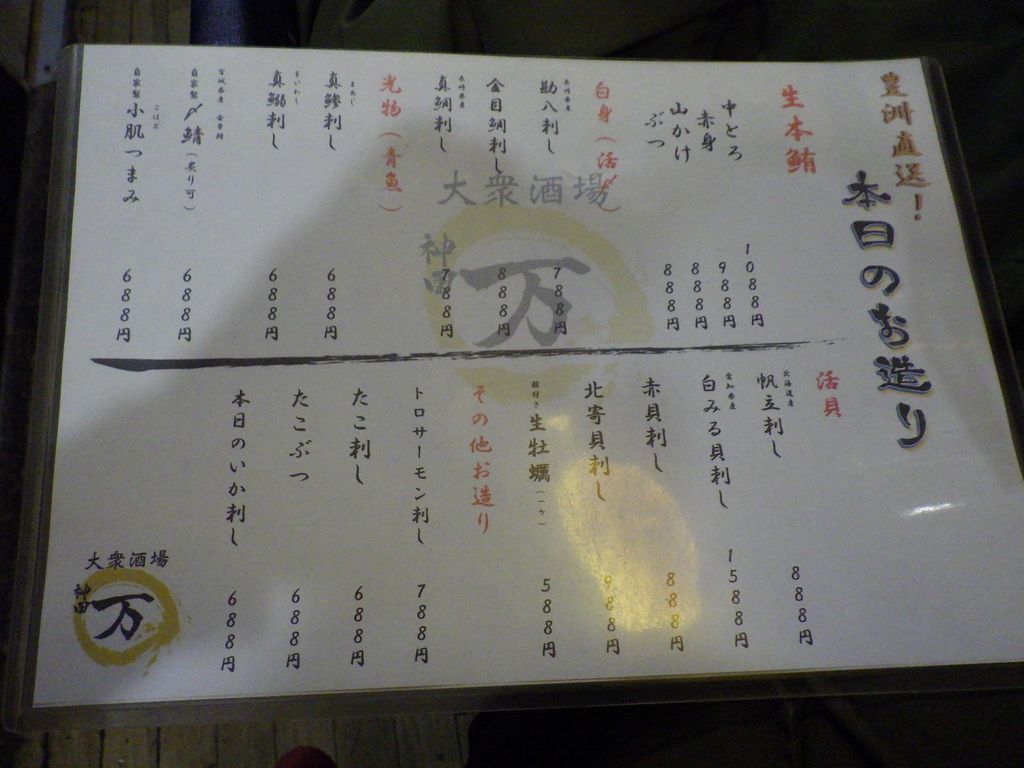 豊洲直送！
本日のお造り
生本鮪
中とろ 1088円
赤身 988円
山かけ 888円
ぶつ 888円
白身（活〆）
長崎県産
勘八刺し 788円
金目鯛刺し 888円
長崎県産
真鯛刺し 788円
光物（青魚）
まあじ
真鯵刺し 688円
まいわし
真鰯刺し 688円
宮城県産 金華鯖
自家製 〆鯖（炙り可） 688円
こはだ
自家製 小肌つまみ 688円
活貝
北海道産
帆立刺し 888円
愛知県産
白みる貝刺し 1588円
赤貝刺し 888円
北寄貝刺し 988円
殻付き 生牡蠣（一ケ） 588円
その他お造り
トロサーモン刺し 788円
たこ刺し 688円
たこぶつ 688円
本日のいか刺し 688円
大衆酒場
神田
万
大衆酒場
神田
万